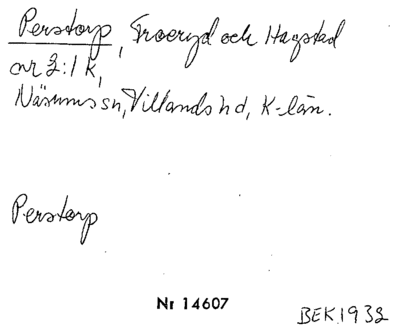 Perstorp, Froeryd och Hagstad
nr 2:1 k,
Näsums sn, Villands hd, K-län.
Perstorp
Nr 14607
BEK 1932